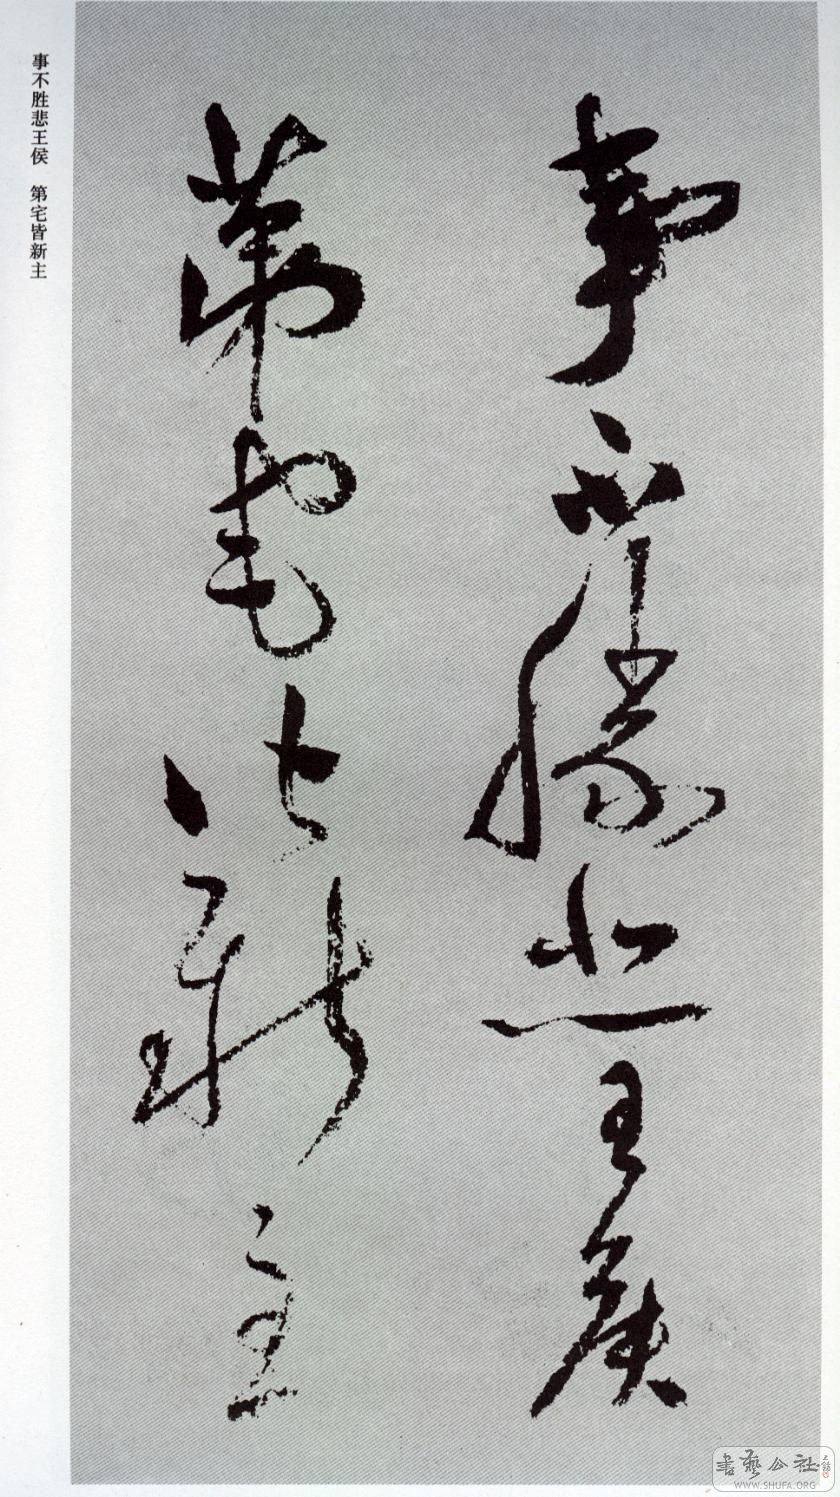 事不勝悲王侯
第宅皆新主
事不胜悲王侯　第宅皆新主
書藝公社
WWW.SHUFA.ORG